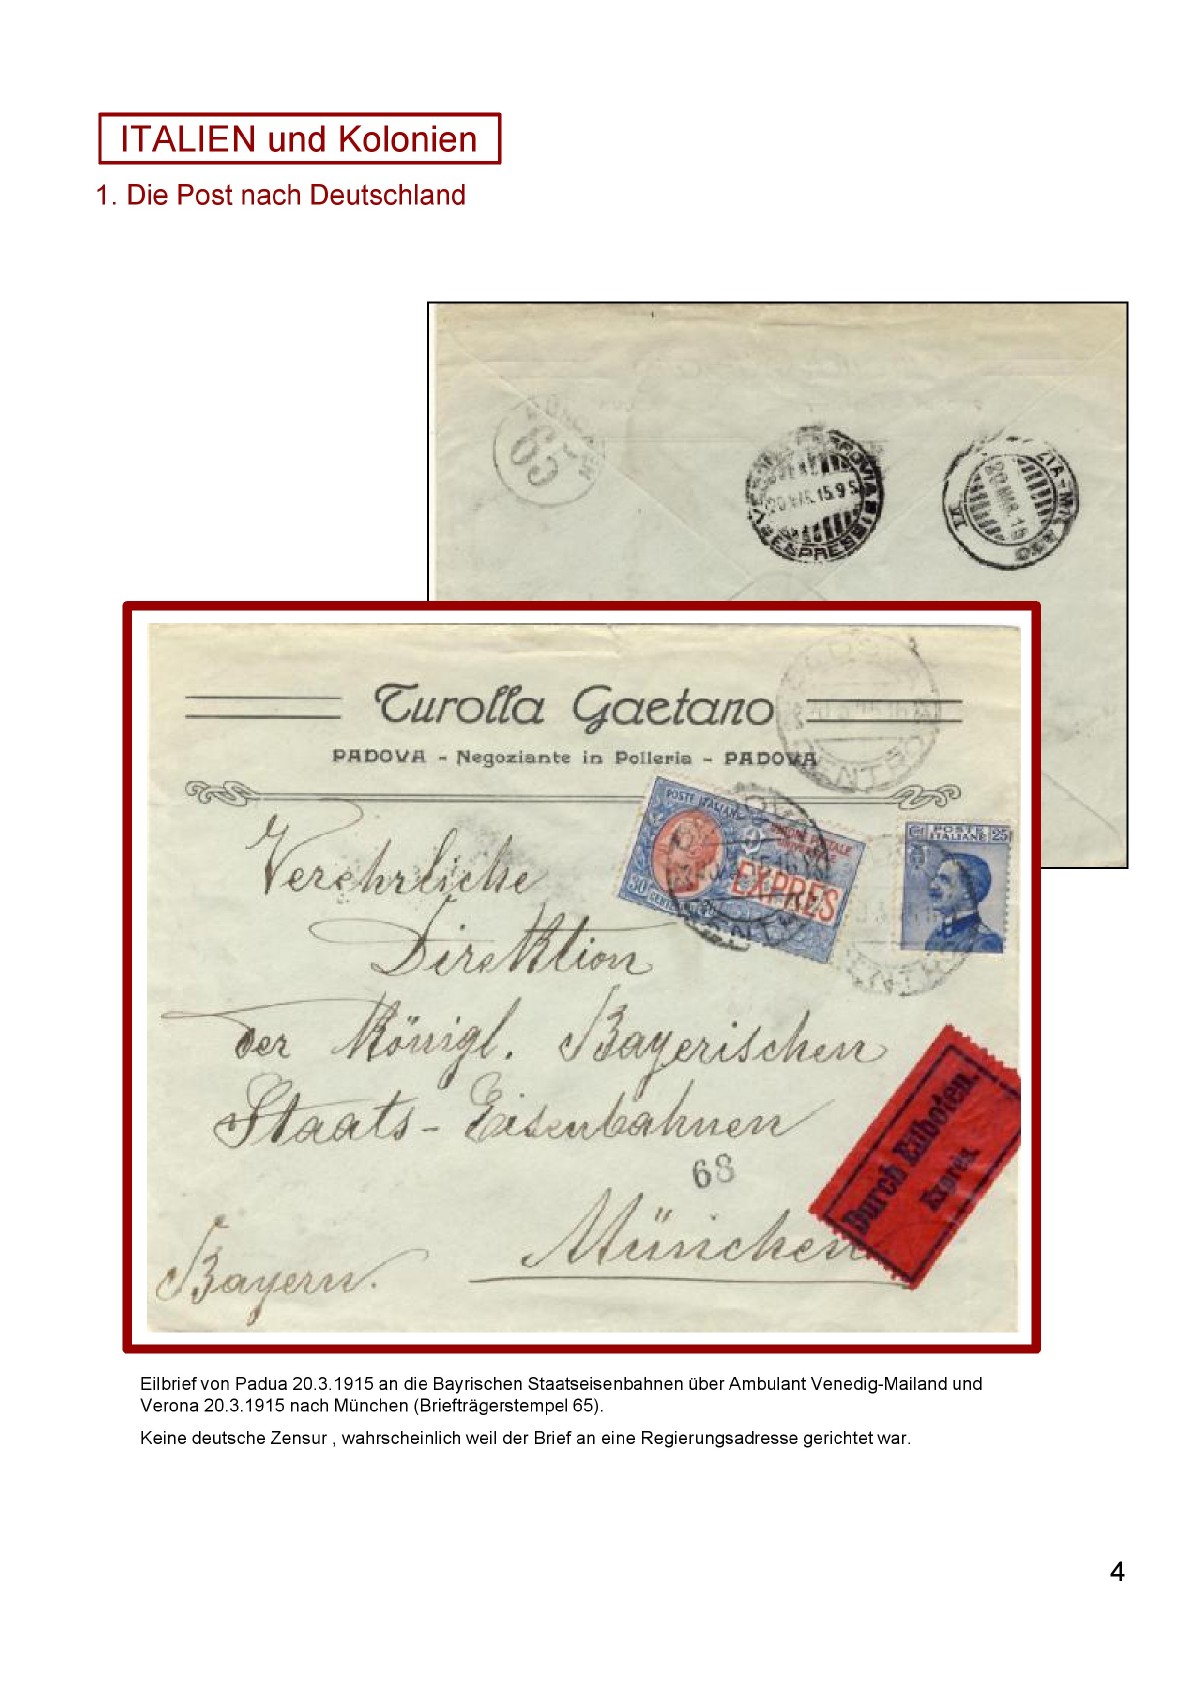 ITALIEN und Kolonien
1. Die Post nach Deutschland
MÜNCHEN
65
ESPRESSI
20 MAR. 15
VI
Turolla Gaetano
PADOVA - Negoziante in Polleria - PADOVA
POSTE ITALIANE
UNIONE POSTALE
UNIVERSALE
EXPRES
30 CENTESIMI 30
POSTE
ITALIANE
25
Verehrliche
Direktion
der Königl. Bayerischen
Staats-Eisenbahnen
68
München
Bayern.
Durch Eilboten.
Exprès.
Eilbrief von Padua 20.3.1915 an die Bayrischen Staatseisenbahnen über Ambulant Venedig-Mailand und
Verona 20.3.1915 nach München (Briefträgerstempel 65).
Keine deutsche Zensur , wahrscheinlich weil der Brief an eine Regierungsadresse gerichtet war.
4